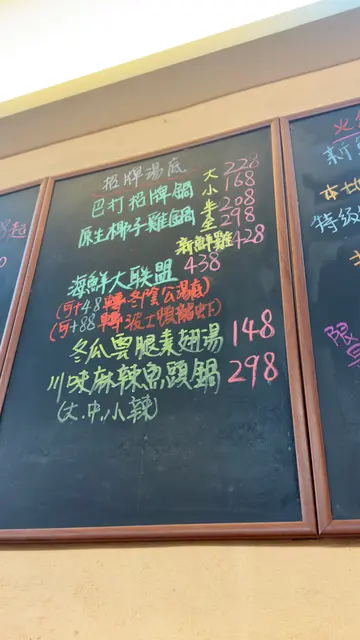 招牌湯底
巴打招牌鍋 大 228
小 168
原生椰子雞鍋 半 208
全 298
新鮮雞 428
海鮮大联盟 438
(可+48轉冬陰公湯底)
(可+88轉波士頓龍蝦)
冬瓜雲腿素翅湯 148
川味麻辣魚頭鍋 298
(大.中.小辣)
起
0
火
新
本地
特級
限